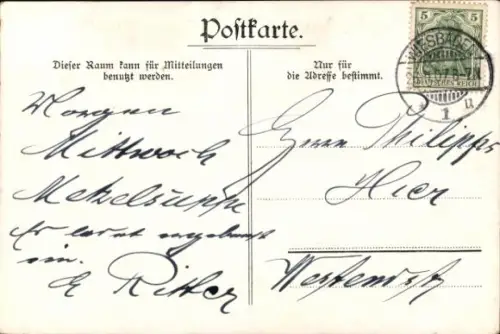 Postkarte.
Dieser Raum kann für Mitteilungen
benutzt werden.
Nur für
die Adresse bestimmt.
5 5
DEUTSCHES REICH
WIESBADEN
1 u
Morgen
Mittwoch
Metzelsuppe
Es ladet ergebenst
ein.
E Ritter
Herrn Philipps
Hier
Westendstr